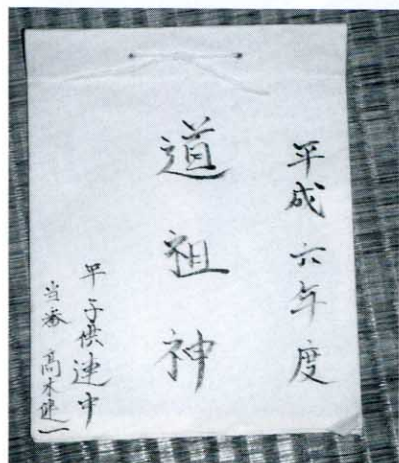 平成六年度
道祖神
甲子供連中
当番 高木健一